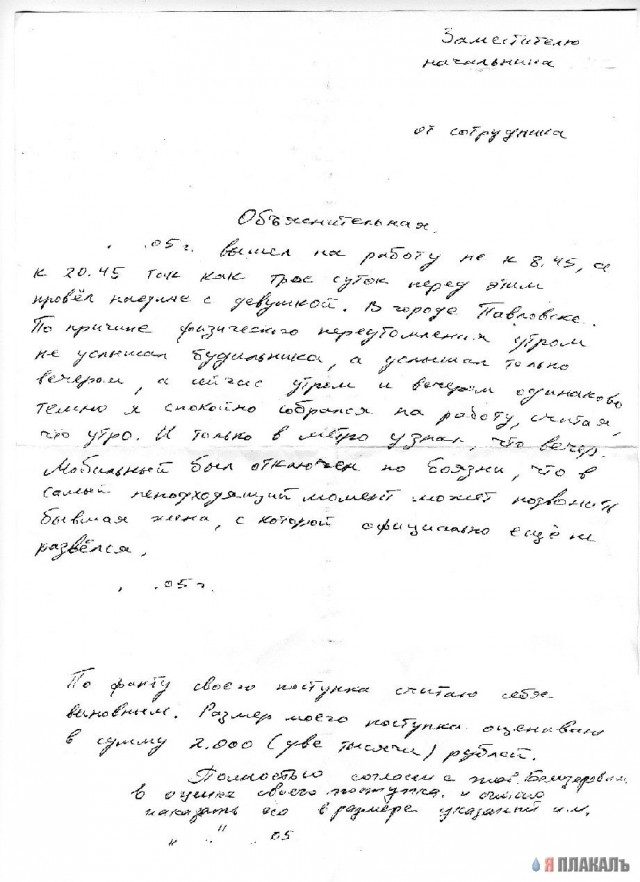 Заместителю
начальника
от сотрудника
Объяснительная.
. .05 г. вышел на работу не к 8.45, а
к 20.45 так как трое суток перед этим
провёл наедине с девушкой. В городе Павловске.
По причине физического переутомления утром
не услышал будильника, а услышал только
вечером, а сейчас утром и вечером одинаково
темно я спокойно собрался на работу, считая,
что утро. И только в метро узнал, что вечер.
Мобильный был отключен по боязни, что в
самый неподходящий момент может позвонить
бывшая жена, с которой официально ещё не
развёлся.
. .05 г.
По факту своего поступка считаю себя
виновным. Размер моего поступка оцениваю
в сумму 2.000 (две тысячи) рублей.
Полностью согласен с
в оценке своего поступка и
наказать его в размере указанной им.
" " .05
Я ПЛАКАЛЪ